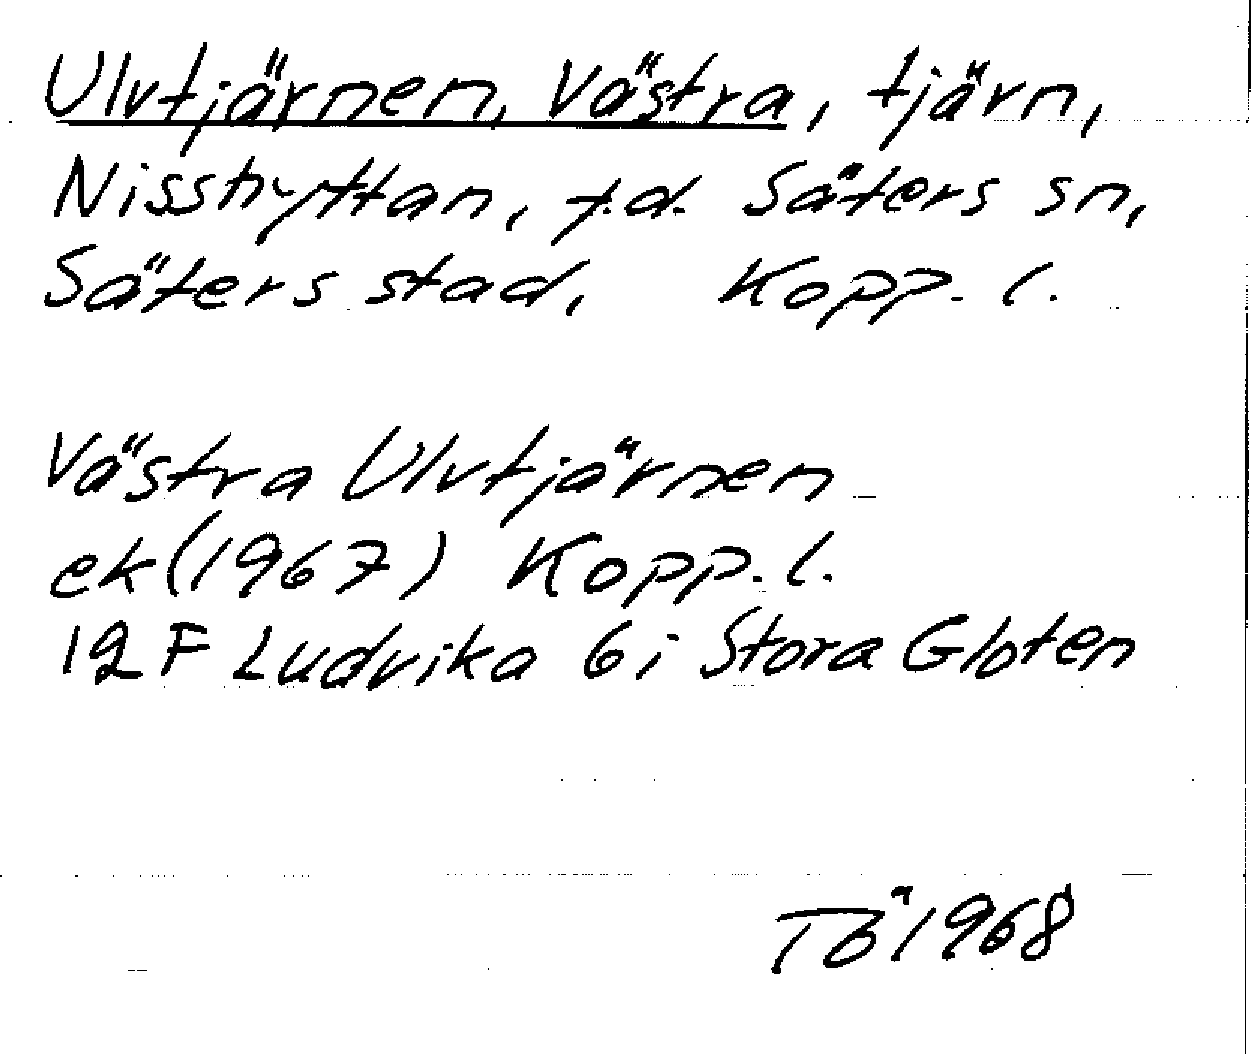 Ulvtjärnen, Västra, tjärn,
Nisshyttan, f.d. Säters sn,
Säters stad, Kopp. l.
Västra Ulvtjärnen
ek (1967) Kopp. l.
12 F Ludvika 6 i Stora Gloten
TÖ 1968